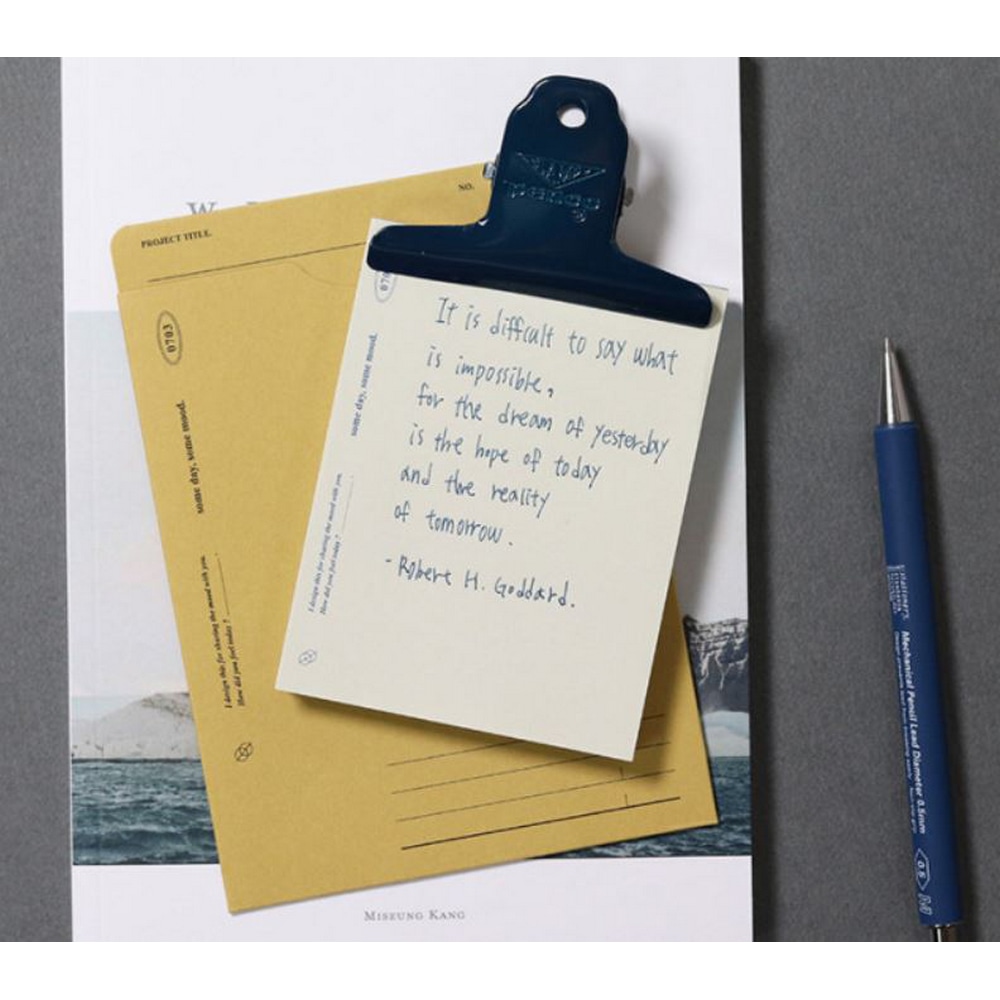 NO.
PROJECT TITLE.
0703
some day, some mood.
I design this for sharing the mood with you.
How did you feel today ?
penco
It is difficult to say what
is impossible,
for the dream of yesterday
is the hope of today
and the reality
of tomorrow.
- Robert H. Goddard.
some day, some mood.
I design this for sharing the mood with you.
How did you feel today ?
Mechanical Pencil Lead Diameter 0.5mm
0.5
MISEUNG KANG